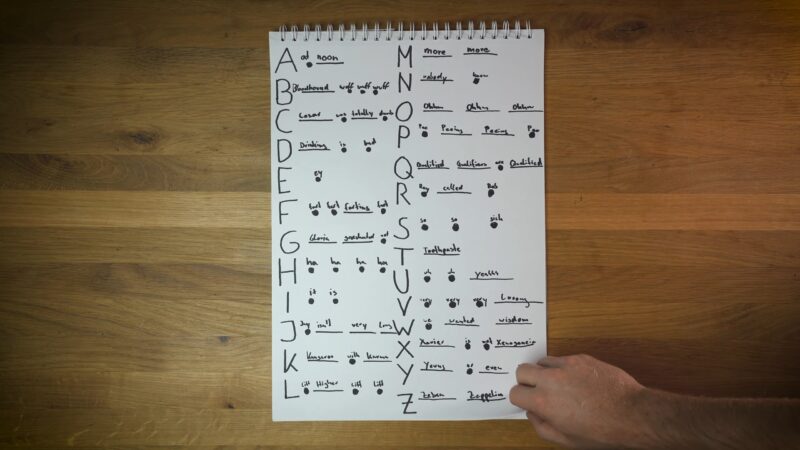 A at noon
B Bloodhound wuff wuff wuff
C Caesar was totally drunk
D Drinking is bad
E ey
F fart fart farting fart
G Gloria graduated not
H ha ha ha ha
I it is
J Jay isn't very long
K Kangaroo with Karma
L Lift Higher Lift Lift
M more more
N nobody knew
O Ohhhm Ohhhm Ohhhm
P Pee Peeing Peeing Pee
Q Qualified Qualifiers are Qualified
R Ray called Rob
S so so sick
T Toothpaste
U uh uh yeahhh
V very very very Looong
W we wanted wisdom
X Xavier is not Xenogeneic
Y Yours or even
Z Zeben Zeppelin